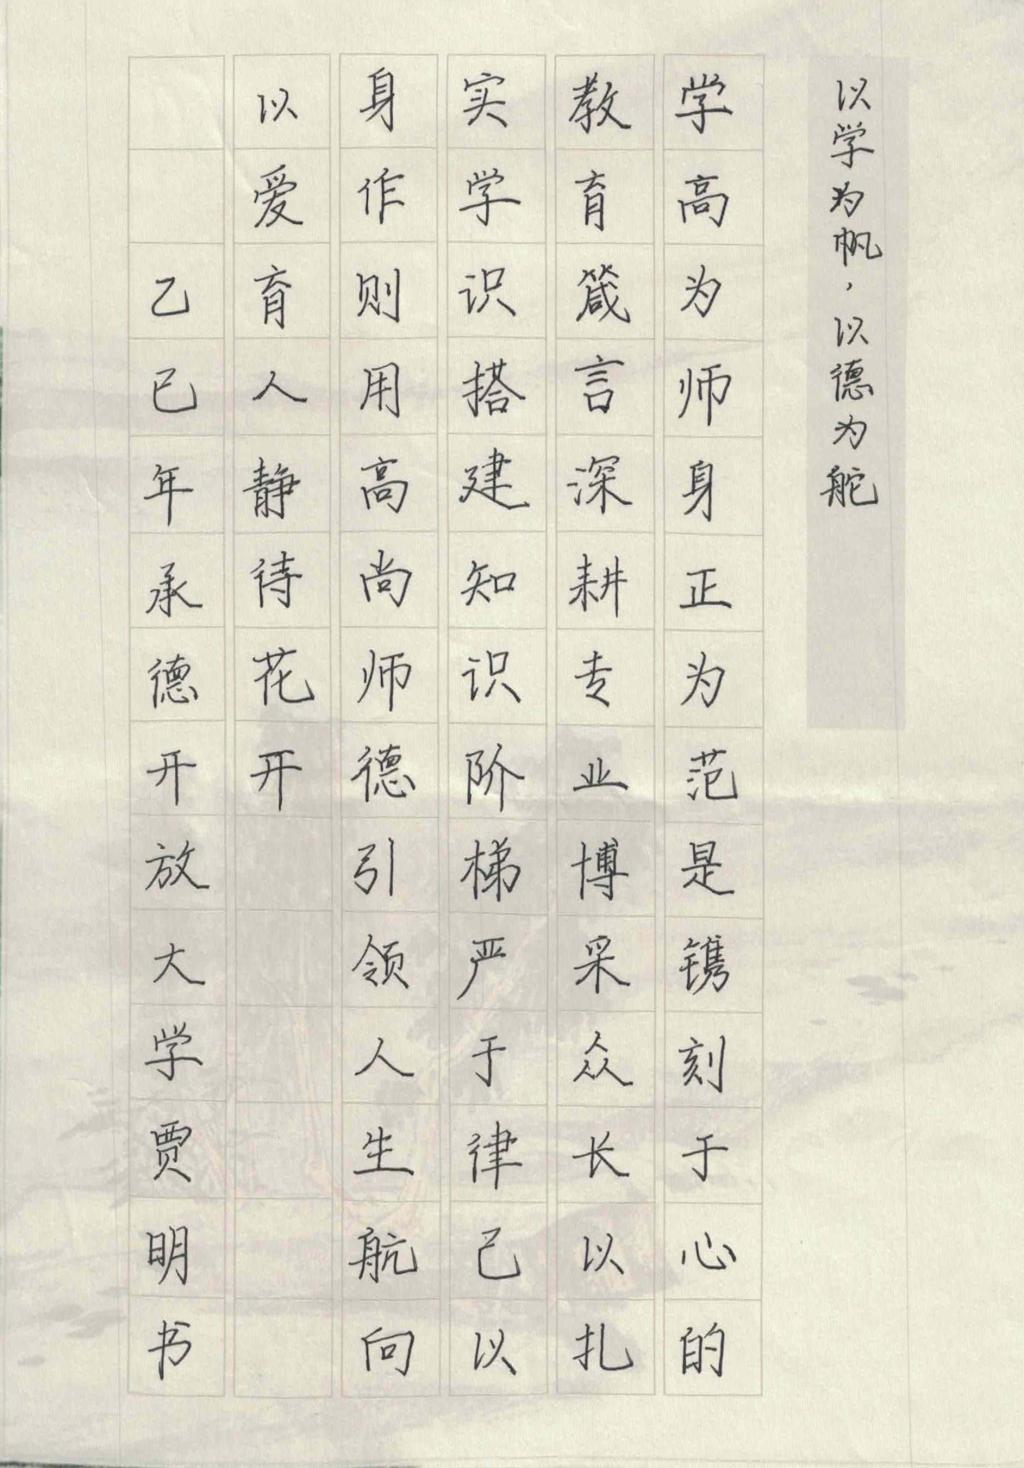 以学为帆，以德为舵
学高为师身正为范是镌刻于心的
教育箴言深耕专业博采众长以扎
实学识搭建知识阶梯严于律己以
身作则用高尚师德引领人生航向
以爱育人静待花开
乙巳年承德开放大学贾明书